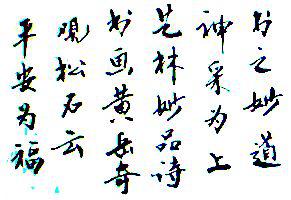 书之妙道
神采为上
艺林妙品诗
书画黄岳奇
观松石云
平安为福